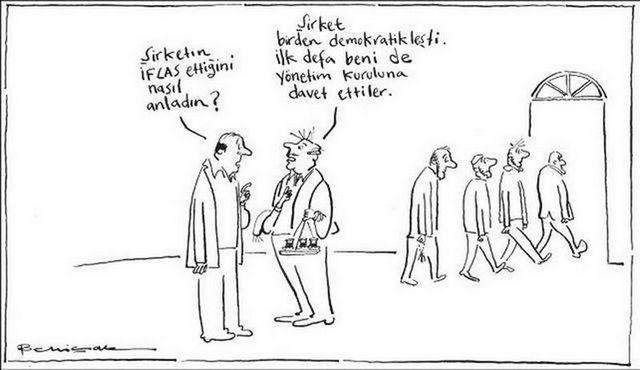 Şirketin
İFLAS ettiğini
nasıl
anladın?
Şirket
birden demokratikleşti.
ilk defa beni de
yönetim kuruluna
davet ettiler.